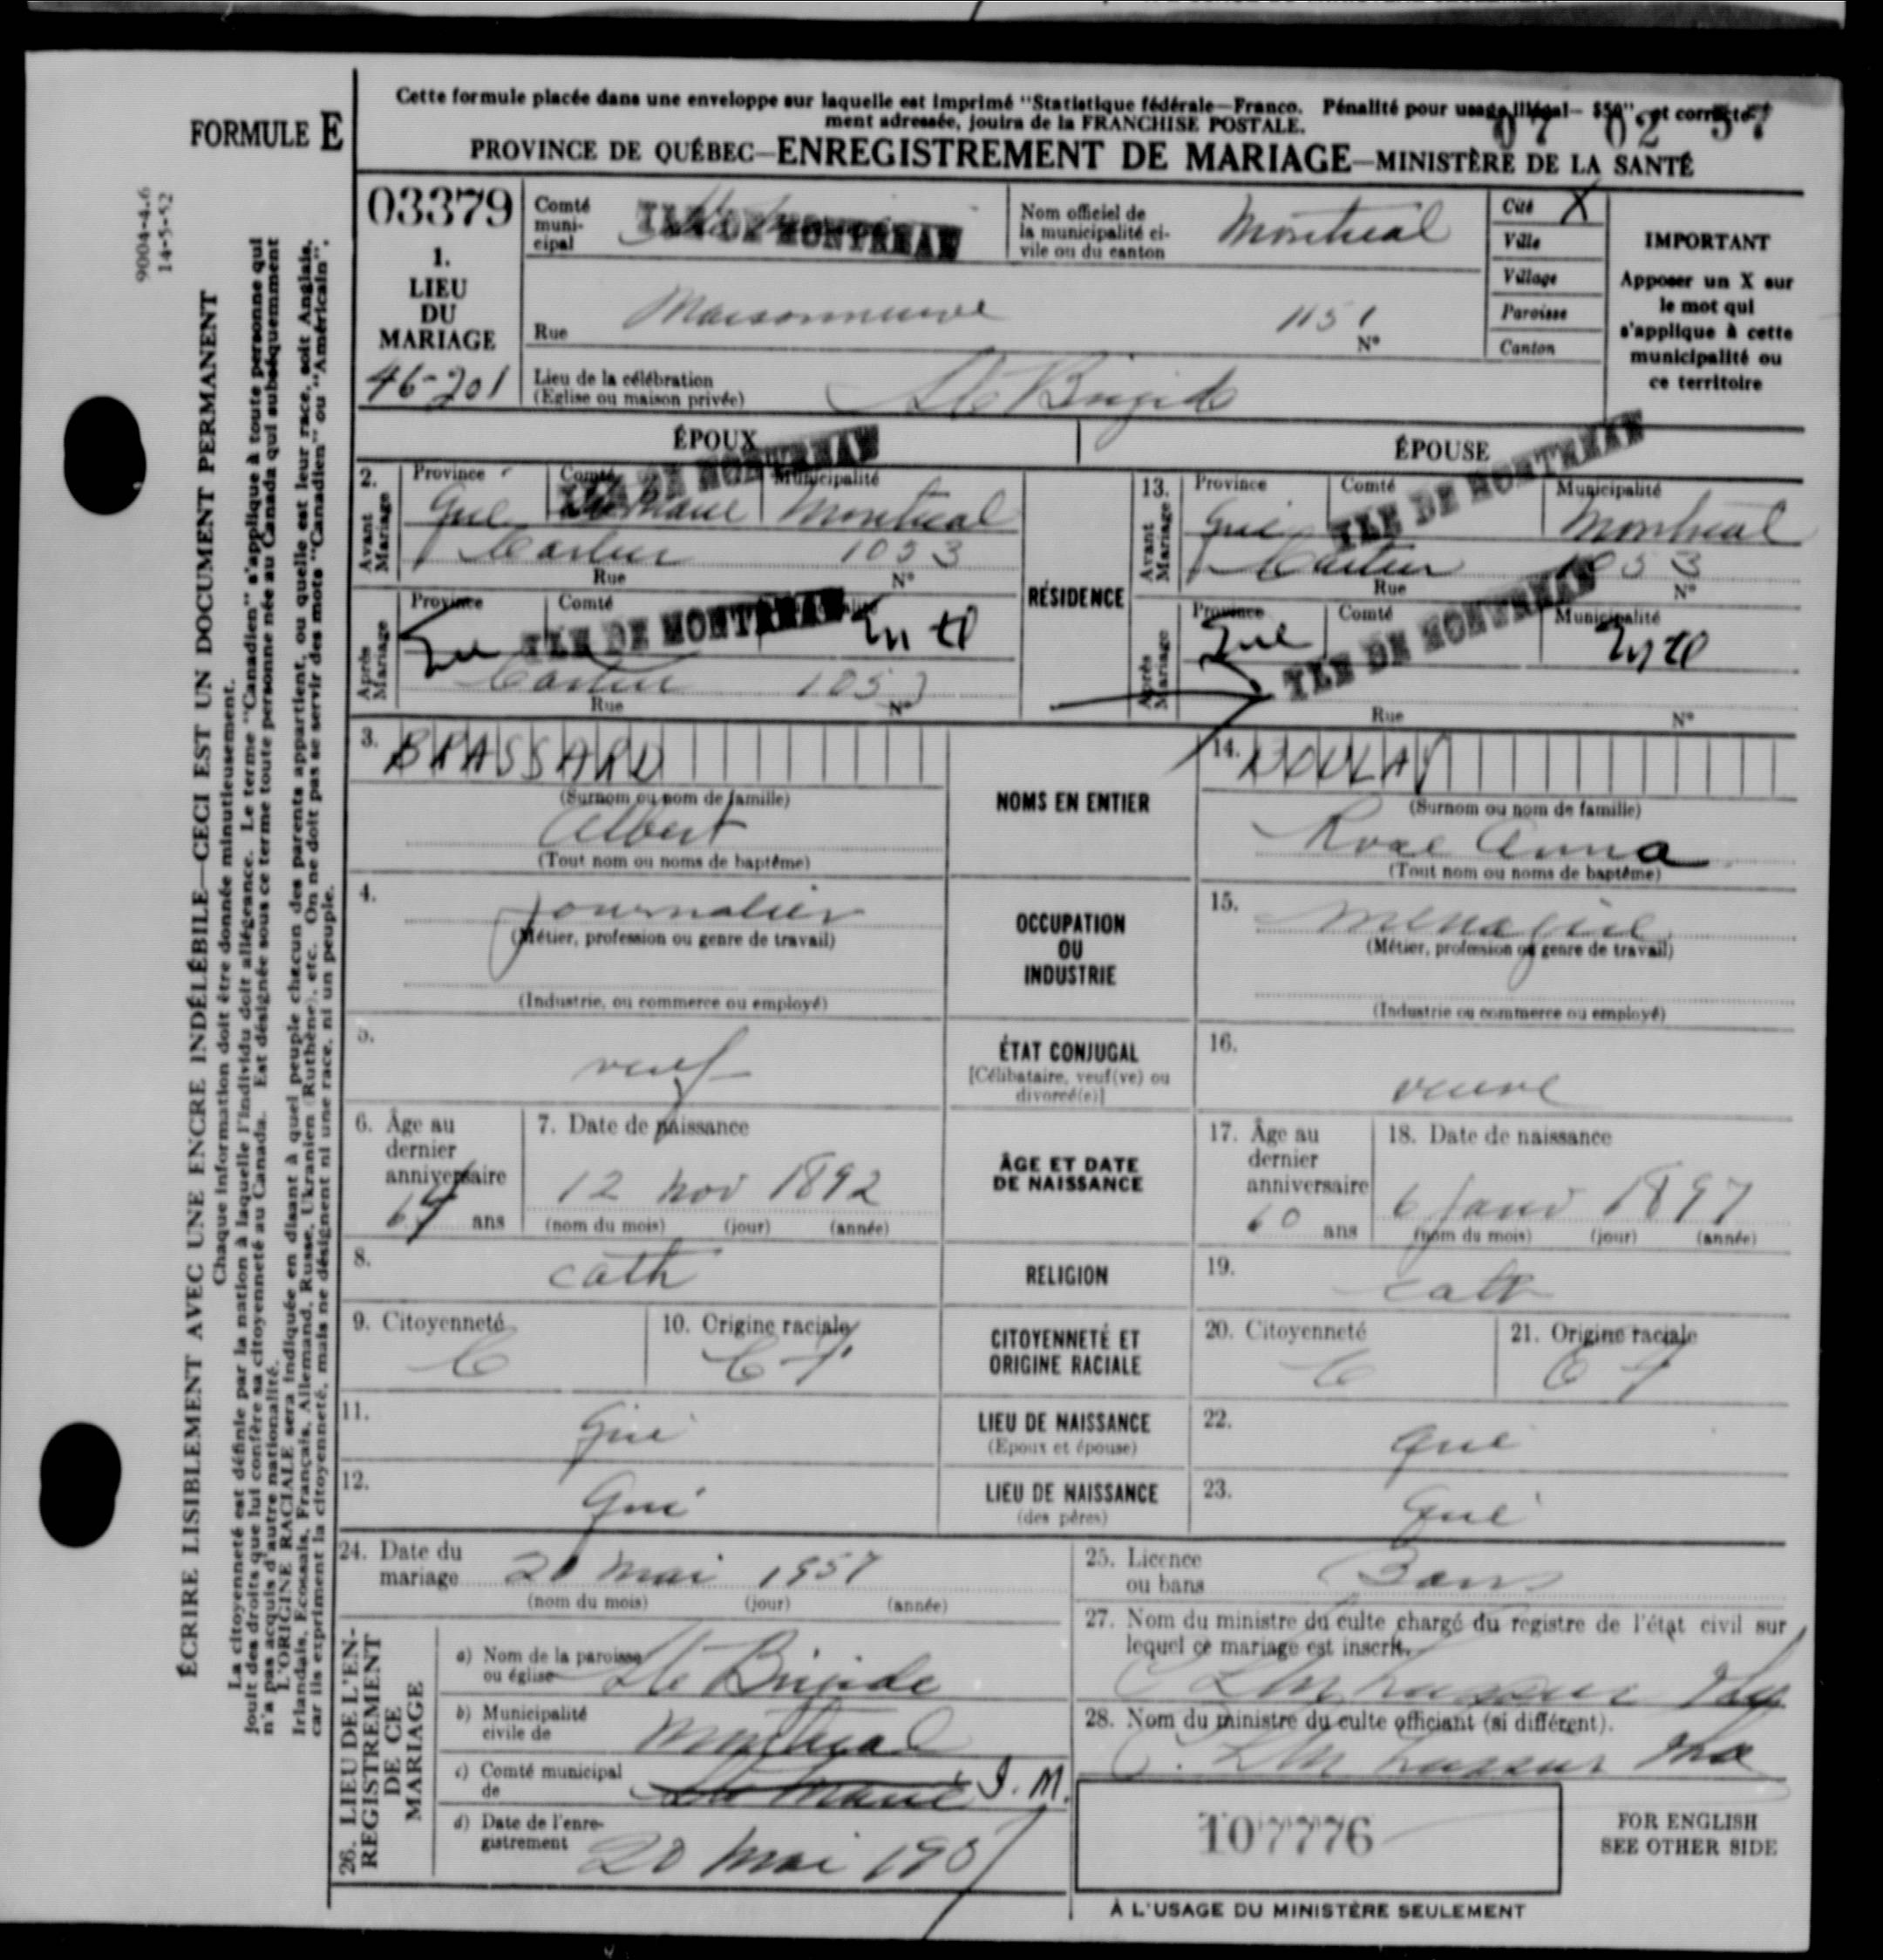 Cette formule placée dans une enveloppe sur laquelle est imprimé "Statistique fédérale—Franco. Pénalité pour usage illégal— $50", et correcte-
ment adressée, jouira de la FRANCHISE POSTALE.
07 02 57
FORMULE E
PROVINCE DE QUÉBEC—ENREGISTREMENT DE MARIAGE—MINISTÈRE DE LA SANTÉ
9004-4.6
14-5-52
ÉCRIRE LISIBLEMENT AVEC UNE ENCRE INDÉLÉBILE—CECI EST UN DOCUMENT PERMANENT
Chaque information doit être donnée minutieusement.
La citoyenneté est définie par la nation à laquelle l'individu doit allégeance. Le terme "Canadien" s'applique à toute personne qui
jouit des droits que lui confère sa citoyenneté au Canada. Est désignée sous ce terme toute personne née au Canada qui subséquemment
n'a pas acquis d'autre nationalité.
L'ORIGINE RACIALE sera indiquée en disant à quel peuple chacun des parents appartient, ou quelle est leur race, soit Anglais,
Irlandais, Ecossais, Français, Allemand, Russe, Ukranien (Ruthène), etc. On ne doit pas se servir des mots "Canadien" ou "Américain",
car ils expriment la citoyenneté, mais ne désignent ni une race, ni un peuple.
03379
1.
LIEU
DU
MARIAGE
46-201
Comté
muni-
cipal
ILE DE MONTREAL
Nom officiel de
la municipalité ci-
vile ou du canton
Montreal
Cité X
Ville
Village
Paroisse
Canton
IMPORTANT
Apposer un X sur
le mot qui
s'applique à cette
municipalité ou
ce territoire
Rue Maisonneuve 1151 N°
Lieu de la célébration
(Eglise ou maison privée)
Ste Brigide
ÉPOUX
ÉPOUSE
2. Avant Mariage
Province Comté Municipalité
Que ILE DE MONTREAL Montreal
Cartier 1053
Rue N°
RÉSIDENCE
13. Avant Mariage
Province Comté Municipalité
Que ILE DE MONTREAL Montreal
Cartier 1053
Rue N°
Après Mariage
Province Comté
Que ILE DE MONTREAL Mtl
Cartier 1053
Rue N°
Après Mariage
Province Comté Municipalité
Que ILE DE MONTREAL Mtl
Rue N°
3. BRASSARD
(Surnom ou nom de famille)
Albert
(Tout nom ou noms de baptême)
NOMS EN ENTIER
14.
(Surnom ou nom de famille)
Rose Anna
(Tout nom ou noms de baptême)
4. journalier
(Métier, profession ou genre de travail)
(Industrie, ou commerce ou employé)
OCCUPATION
OU
INDUSTRIE
15. menagere
(Métier, profession ou genre de travail)
(Industrie ou commerce ou employé)
5. veuf
ÉTAT CONJUGAL
[Célibataire, veuf(ve) ou
divorcé(e)]
16. veuve
6. Âge au
dernier
anniversaire
64 ans
7. Date de naissance
12 nov 1892
(nom du mois) (jour) (année)
ÂGE ET DATE
DE NAISSANCE
17. Âge au
dernier
anniversaire
60 ans
18. Date de naissance
6 janv 1897
(nom du mois) (jour) (année)
8. cath
RELIGION
19. cath
9. Citoyenneté
C
10. Origine raciale
C F
CITOYENNETÉ ET
ORIGINE RACIALE
20. Citoyenneté
C
21. Origine raciale
C F
11. Que
LIEU DE NAISSANCE
(Epoux et épouse)
22. Que
12. Que
LIEU DE NAISSANCE
(des pères)
23. Que
24. Date du
mariage 20 mai 1957
(nom du mois) (jour) (année)
25. Licence
ou bans Bans
26. LIEU DE L'EN-
REGISTREMENT
DE CE
MARIAGE
a) Nom de la paroisse
ou église Ste Brigide
b) Municipalité
civile de Montreal
c) Comté municipal
de Ste Marie I. M.
d) Date de l'enre-
gistrement 20 mai 1957
27. Nom du ministre du culte chargé du registre de l'état civil sur
lequel ce mariage est inscrit.
28. Nom du ministre du culte officiant (si différent).
107776
FOR ENGLISH
SEE OTHER SIDE
À L'USAGE DU MINISTÈRE SEULEMENT